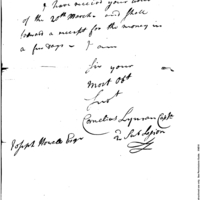 I have received your letter
of the 20th March and shall
forward a receipt for the money in
a few days - I am
Sir your
most Obt
Servt
Cornelius Lyman Capt.
2 Sub Legion
Joseph Howell Esqr